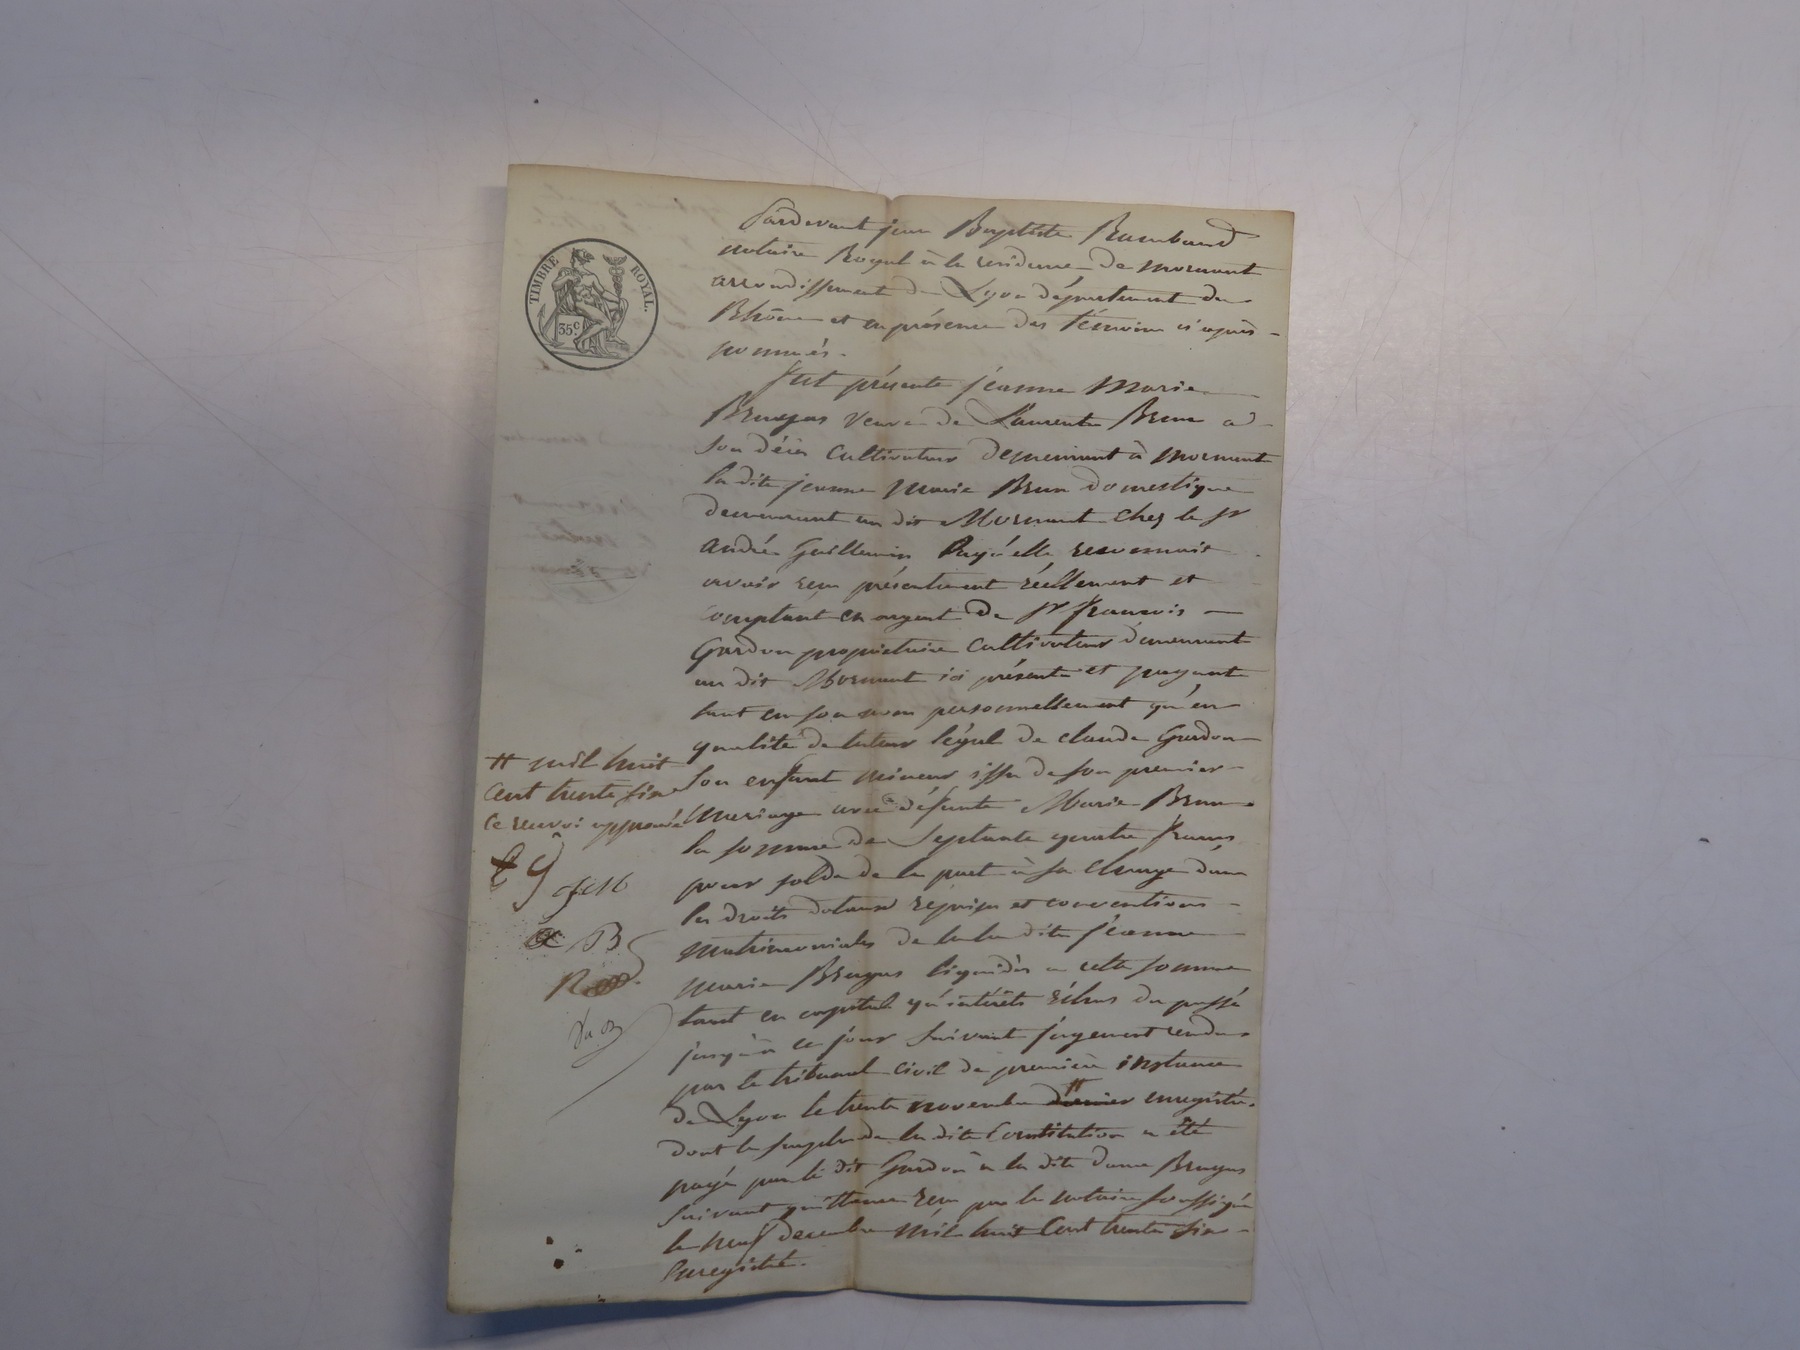 TIMBRE ROYAL.
35c.
Pardevant jean Baptiste Rambaud
notaire Royal à la residence de mornant
arrondissement de Lyon département du
Rhône et en présence des témoins ci après
nommés.
Fut présente jéanne Marie
Bruyas veuve de Laurent Brun a
son décès cultivateur demeurant à mornant
la dite jeanne Marie Brun domestique
demeurant au dit Mornant chez le sr
andré Guillemin laquelle reconnait
avoir reçu présentement réellement et
comptant en argent de sr francois
Gardon propriétaire cultivateur demeurant
au dit Mornant ici présent et payant
tant en son nom personnellement qu'en
qualité de tuteur légal de claude Gardon
son enfant mineur issu de son premier
mariage avec défunte Marie Brun
la somme de Septante quatre francs
pour solde de la part à sa charge dans
les droits dotaux reprises et conventions
matrimoniales de la dite jéanne
marie Bruyas liquidés a cette somme
tant en capital qu'intérêts échus du passé
jusqu'à ce jour suivant jugement rendu
par le tribunal civil de première instance
de Lyon le trente novembre dernier enregistré.
dont le surplus de la dite Constitution a été
payé par le dit Gardon à la dite dame Bruyas
suivant quittance reçu par le notaire soussigné
le neuf decembre mil huit Cent trente six
Enregistré.
# mil huit
cent trente six
ce renvoi approuvé
B